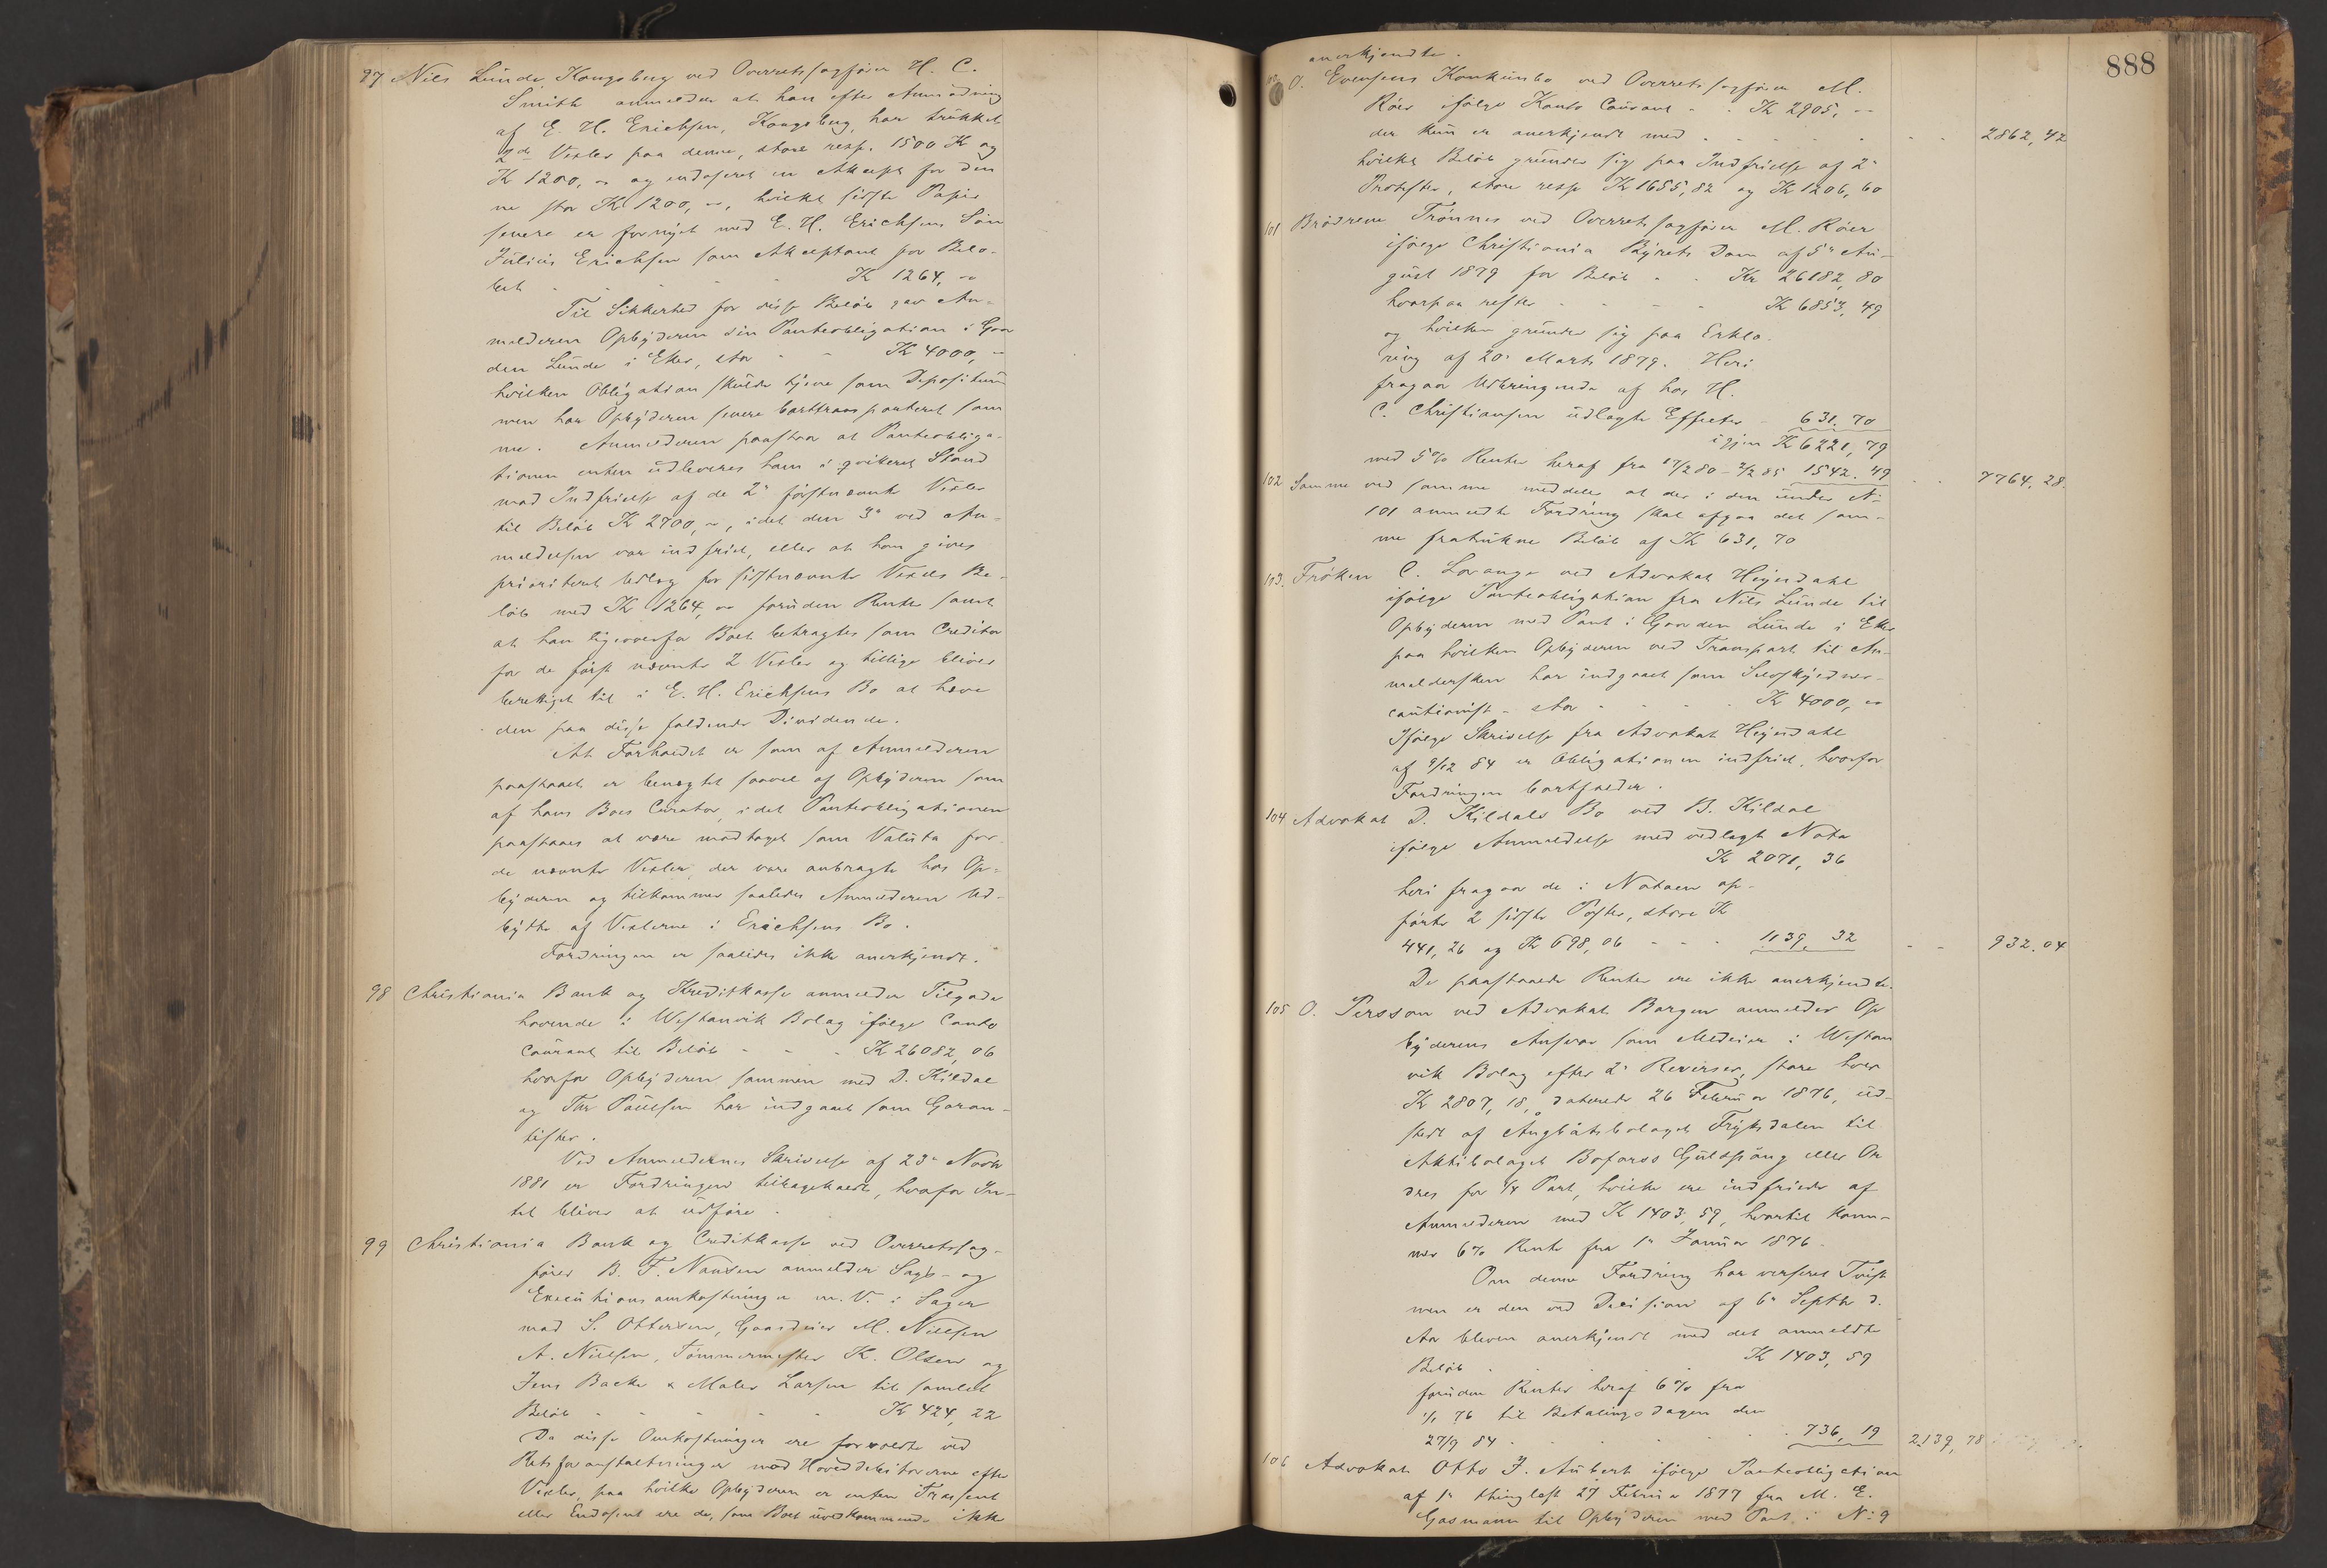 97 Nils Lunde Kongsberg ved Overretssagfører H. C.
Smith anmelder at han efter Anmodning
af E. H. Erichsen, Kongsberg, har trukket
2de Vexler paa denne, store resp. 1500 K og
K 1200, - og endosseret en Akcept for den
ne stor K 1200, -, hvilket sidste Papir
senere er fornyet med E. H. Erichsens Søn
Julius Erichsen som Akceptant for Belø-
bet - - - - K 1264, -
Til Sikkerhed for disse Beløb gav An-
melderen Opbyderen sin Panteobligation i Gaar
den Lunde i Eker, stor - - K 4000, -
hvilken Obligation skulde tjene som Depositum
men har Opbyderen senere borttransporteret sam
me. Anmelderen paastaar at Panteobliga-
tionen enten udleveres ham i qvitteret Stand
mod Indfrielse af de 2de førstnævnte Vexler
til Beløb K 2700, -, idet den 3die ved An-
meldelsen var indfriet, eller at ham gives
prioriteret Udlæg for sidstnævnte Vexels Be-
løb med K 1264, - foruden Renter samt
at han ligeoverfor Boet betragtes som Creditor
for de først nævnte 2 Vexler og tillige bliver
berettiget til i E. H. Erichsens Bo at hæve
den paa disse faldende Dividende.
At Forholdet er som af Anmelderen
paastaaet er benægtet saavel af Opbyderen som
af hans Boes Curator, idet Panteobligationen
paastaaes at være modtaget som Valuta for
de nævnte Vexler, der vare anbragte hos Op-
byderen og tilkommer saaledes Anmelderen Ud-
bytte af Vexlerne i Erichsens Bo.
Fordringen er saaledes ikke anerkjendt.
98 Christiania Bank og Kreditkasse anmelder Tilgode
havende i Westanvik Bolag ifølge Conto
Courant til Beløb - - - K 26082, 06
hvorfor Opbyderen sammen med D. Kildal
og Thr Paulsen har indgaaet som Garan-
tister.
Ved Anmeldernes Skrivelse af 23de Novbr
1881 er Fordringen tilbagekaldt, hvorfor In-
tet bliver at udføre.
99 Christiania Bank og Creditkasse ved Overretssag-
fører B. F. Nansen anmelder Sags- og
Executionsomkostninger m. V. i Sager
mod S. Ottersen, Gaardeier M. Nielsen
A. Nielsen, Tømmermester K. Olsen og
Jens Bache & Maler Larsen til samlet
Beløb - - - - K 424, 22
Da disse Omkostninger ere forvoldte ved
Retsforanstaltninger mod Hoveddebitorerne efter
Vexler, paa hvilke Opbyderen er enten Trassent
eller Endossent ere de, som Boet uvedkommende ikke
888
anerkjendte.
100 O. Evensens Konkursbo ved Overretssagfører M.
Röer ifølge Konto Courant - - K 2905, -
der kun er anerkjendt med - - - - - 2862, 42
hvilket Beløb grunder sig paa Indfrielse af 2de
Protester, store resp K 1655, 82 og K 1206, 60
101 Brødrene Trønnes ved Overretssagfører M. Röer
ifølge Christiania Byrets Dom af 5te Au-
gust 1879 for Beløb - - Kr 26182, 80
hvorpaa rester - - - - K 6853, 49
og hvilken grunder sig paa Erklæ-
ring af 20de Marts 1879. Heri
fragaar Udbringende af hos H.
C. Christiansen udlagte Effecter - 631, 70
igjen K 6221, 79
med 5% Renter heraf fra 17/2 80 - 2/2 85 1542. 49 - - 7764. 28.
102 Samme ved samme meddeler at der i den under No
101 anmeldte Fordring skal afgaa det sam-
me fratrukne Beløb af K 631, 70
103. Frøken C. Lorange ved Advokat Heyerdahl
ifølge Panteobligation fra Nils Lunde til
Opbyderen med Pant i Gaarden Lunde i Eker
paa hvilken Opbyderen ved Transport til An-
meldersken har indgaaet som Selvskyldner-
cautionist - stor - - - K 4000, -
Ifølge Skrivelse fra Advokat Heyerdahl
af 9/12 84 er Obligationen indfriet, hvorfor
Fordringen bortfalder.
104 Advokat D. Kildals Bo ved B. Kildal
ifølge Anmeldelse med vedlagt Nota
K 2071, 36
heri fragaar de i Notaen op-
førte 2 sidste Poster, store K
441, 26 og K 698, 06 - - - 1139, 32 - - 932. 04
De paastaaede Renter ere ikke anerkjendte.
105 O. Persson ved Advokat Bergen anmelder Op
byderens Ansvar som Medeier i Westan
vik Bolag efter 2de Reverser, store hver
K 2807, 18, daterede 26 Februar 1876, ud-
stedt af Ångbåtsbolaget Fryksdalen til
Aktibolaget Bofors Gullspång eller Or
dres for 1/4 Part, hvilke ere indfriede af
Anmelderen med K 1403, 59, hvortil kom-
mer 6% Rente fra 1ste Januar 1876.
Om denne Fordring har verseret Tvist
men er den ved Decision af 6te Septbr d.
Aar bleven anerkjendt med det anmeldte
Beløb - - - - K 1403, 59
foruden Renter heraf 6% fra
1/1 76 til Betalingsdagen den
27/9 84 - - - - 736, 19 2139, 78
106 Advokat Otto J. Aubert ifølge Panteobligation
af 1ste thinglæst 27 Februar 1877 fra M. E.
Gasmann til Opbyderen med Pant i No 9